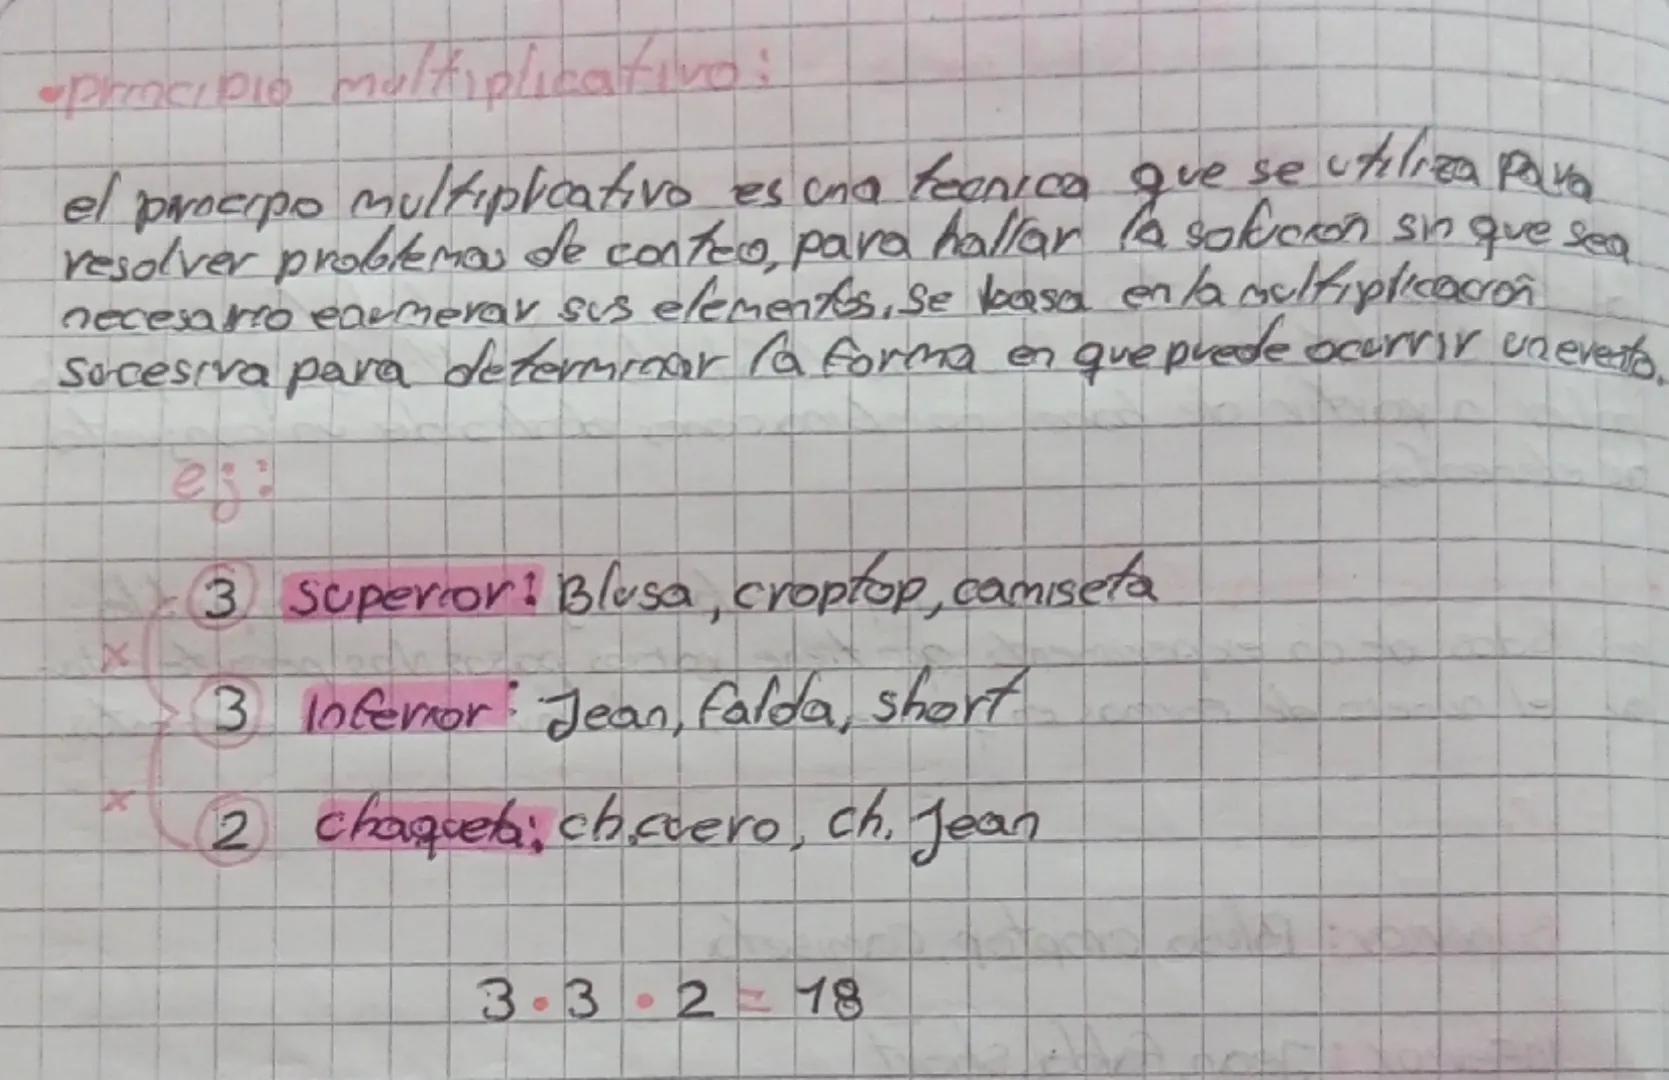 •principio multiplicativo:
el principo multiplicativo es una tecnica que se utiliza para
resolver problemas de conteo, para hallar la solución sin que sea
necesario enumerar sus elementos, se basa en la multiplicación
sucesiva para determinar la forma en que puede ocurrir un evento.
ej:
3 superior: Blusa, croptop, camiseta
x
3 Inferior: Jean, falda, short
x
2 chaqueta: ch.cuero, ch. Jean
3 · 3 · 2 = 18